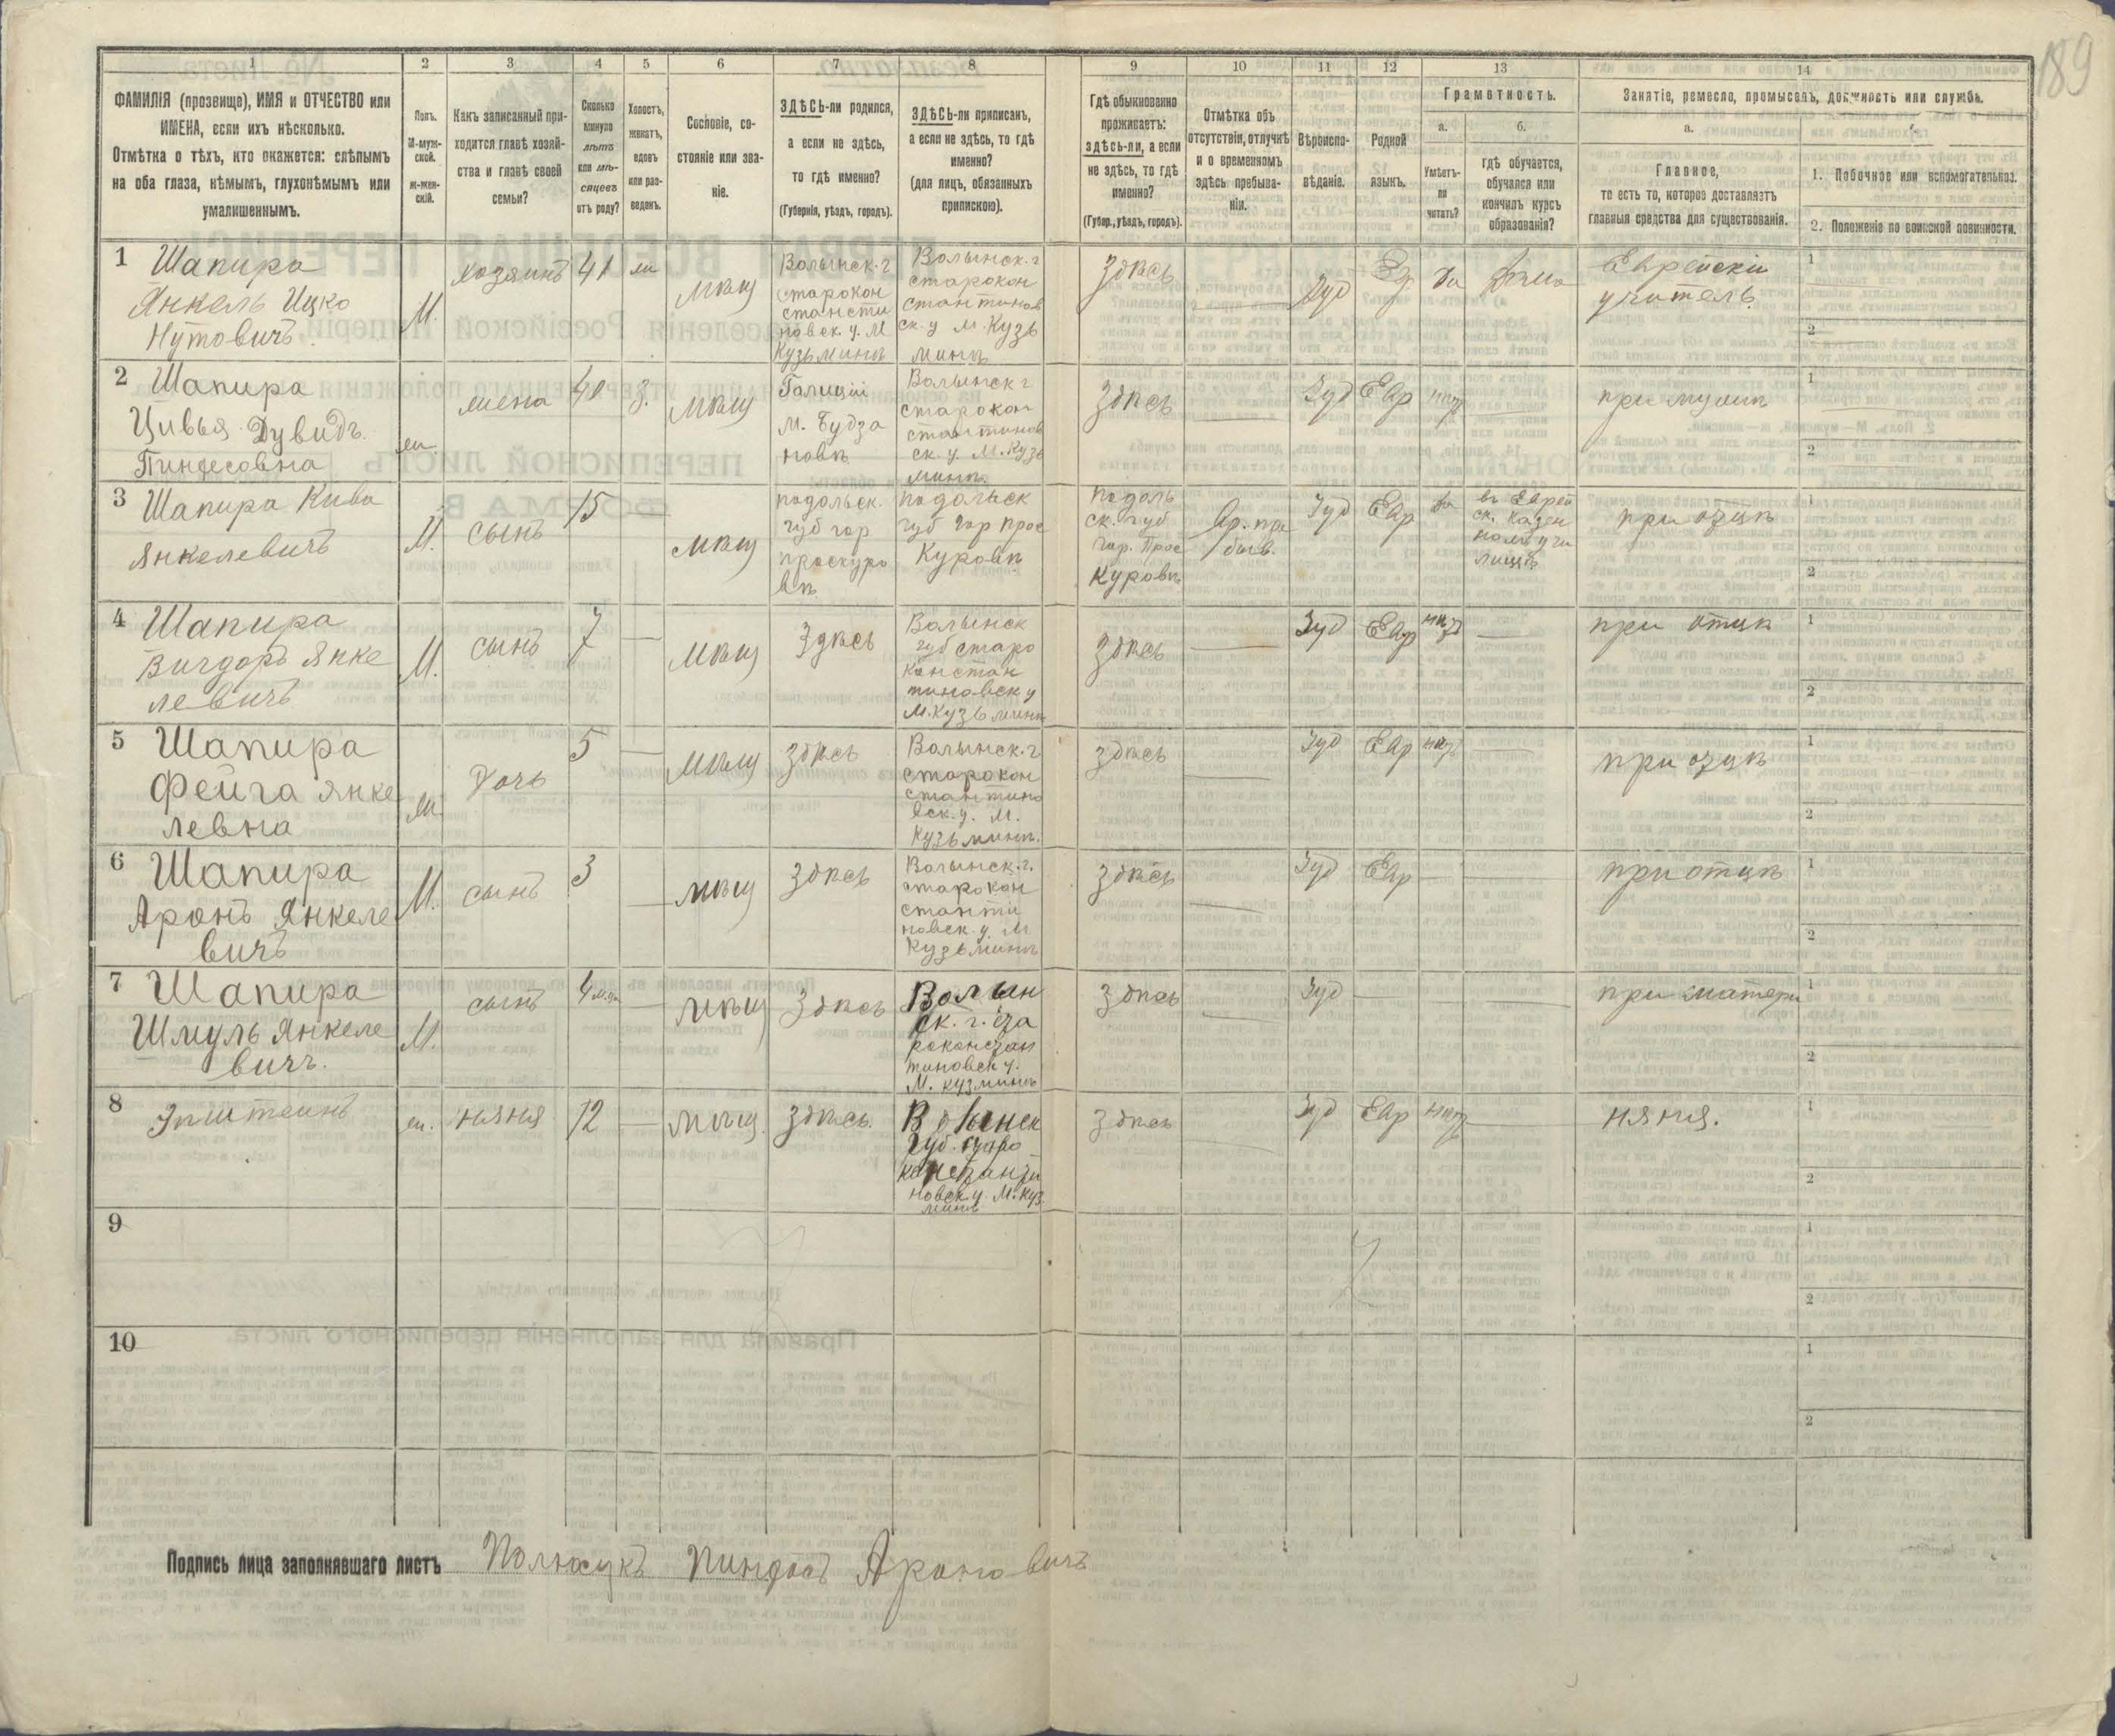 189
1 2 3 4 5 6 7 8 9 10 11 12 13 14
ФАМИЛІЯ (прозвище), ИМЯ и ОТЧЕСТВО или
ИМЕНА, если ихъ нѣсколько.
Отмѣтка о тѣхъ, кто окажется: слѣпымъ
на оба глаза, нѣмымъ, глухонѣмымъ или
умалишеннымъ.
Полъ.
М-муж-
ской.
Ж-жен-
скій.
Какъ записанный при-
ходится главѣ хозяй-
ства и главѣ своей
семьи?
Сколько
минуло
лѣтъ
или мѣ-
сяцевъ
отъ роду?
Холостъ,
женатъ,
вдовъ
или раз-
веденъ.
Сословіе, со-
стояніе или зва-
ніе.
ЗДѢСЬ-ли родился,
а если не здѣсь,
то гдѣ именно?
(Губернія, уѣздъ, городъ).
ЗДѢСЬ-ли приписанъ,
а если не здѣсь, то гдѣ
именно?
(для лицъ, обязанныхъ
припискою).
Гдѣ обыкновенно
проживаетъ:
здѣсь-ли, а если
не здѣсь, то гдѣ
именно?
(Губер., уѣздъ, городъ).
Отмѣтка объ
отсутствіи, отлучкѣ
и о временномъ
здѣсь пребыва-
ніи.
Вѣроиспо-
вѣданіе.
Родной
языкъ.
Грамотность.
а.
Умѣетъ-
ли
читать?
б.
гдѣ обучается,
обучался или
кончилъ курсъ
образованія?
Занятіе, ремесло, промыселъ, должность или служба.
а.
Главное,
то есть то, которое доставляетъ
главныя средства для существованія.
1. Побочное или вспомогательное.
2. Положеніе по воинской повинности.
1 Шапира
Янкель Ицко
Нутовичъ
М.
хозяинъ
41
ж
мѣщ
Волынск. г
старокон
станти
новск. у. М
Кузьминѣ
Волынск. г
старокон
стантинов
ск. у М. Кузь
минѣ
здѣсь
Іуд
Евр
да
дома
Еврейскій
учитель
1
2
2 Шапира
Цивья Дувидъ
Пинхесовна
ж.
жена
40
з.
мѣщ
Галиціи
М. Будза
новѣ
Волынск г
старокон
стантинов
ск. у. М. Кузь
минѣ
здѣсь
Іуд
Евр
нѣтъ
при мужѣ
1
2
3 Шапира Кива
Янкелевичъ
М.
сынъ
15
мѣщ
подольск.
губ гор
проскуро
вѣ
подольск
губ гор Прос
куровѣ
Подоль
ск. губ
гор. Прос
куровѣ
Вр. пре
быв.
Іуд
Евр
да
въ Еврей
ск. казен
номъ учи
лищѣ
при отцѣ
1
2
4 Шапира
Вигдоръ Янке
левичъ
М.
сынъ
7
мѣщ
Здѣсь
Волынск
губ старо
констан
тиновск у
М. Кузьминѣ
здѣсь
Іуд
Евр
нѣтъ
при отцѣ
1
2
5 Шапира
Фейга Янке
левна
ж
Дочь
5
мѣщ
здѣсь
Волынск. г
старокон
стантино
вск. у. М.
Кузьминѣ.
здѣсь
Іуд
Евр
нѣтъ
при отцѣ
1
2
6 Шапира
Аронъ Янкеле
вичъ
М.
сынъ
3
мѣщ
здѣсь
Волынск. г.
старокон
станти
новск. у. М
Кузьминѣ
здѣсь
Іуд
Евр
при отцѣ
1
2
7 Шапира
Шмуль Янкеле
вичъ.
М.
сынъ
4 мѣс
мѣщ
здѣсь
Волын
ск. г. ста
роконстан
тиновск у.
М. кузминѣ
здѣсь
Іуд
при матери
1
2
8 Эпштеинъ
ж.
няня
12
мѣщ.
здѣсь.
Волынск
губ. старо
константи
новск у. М. Куз
минѣ
здѣсь
Іуд
Евр
нѣтъ
няня.
1
2
9
1
2
10
1
2
Подпись лица заполнявшаго листъ Пинхосъ Ароновичъ